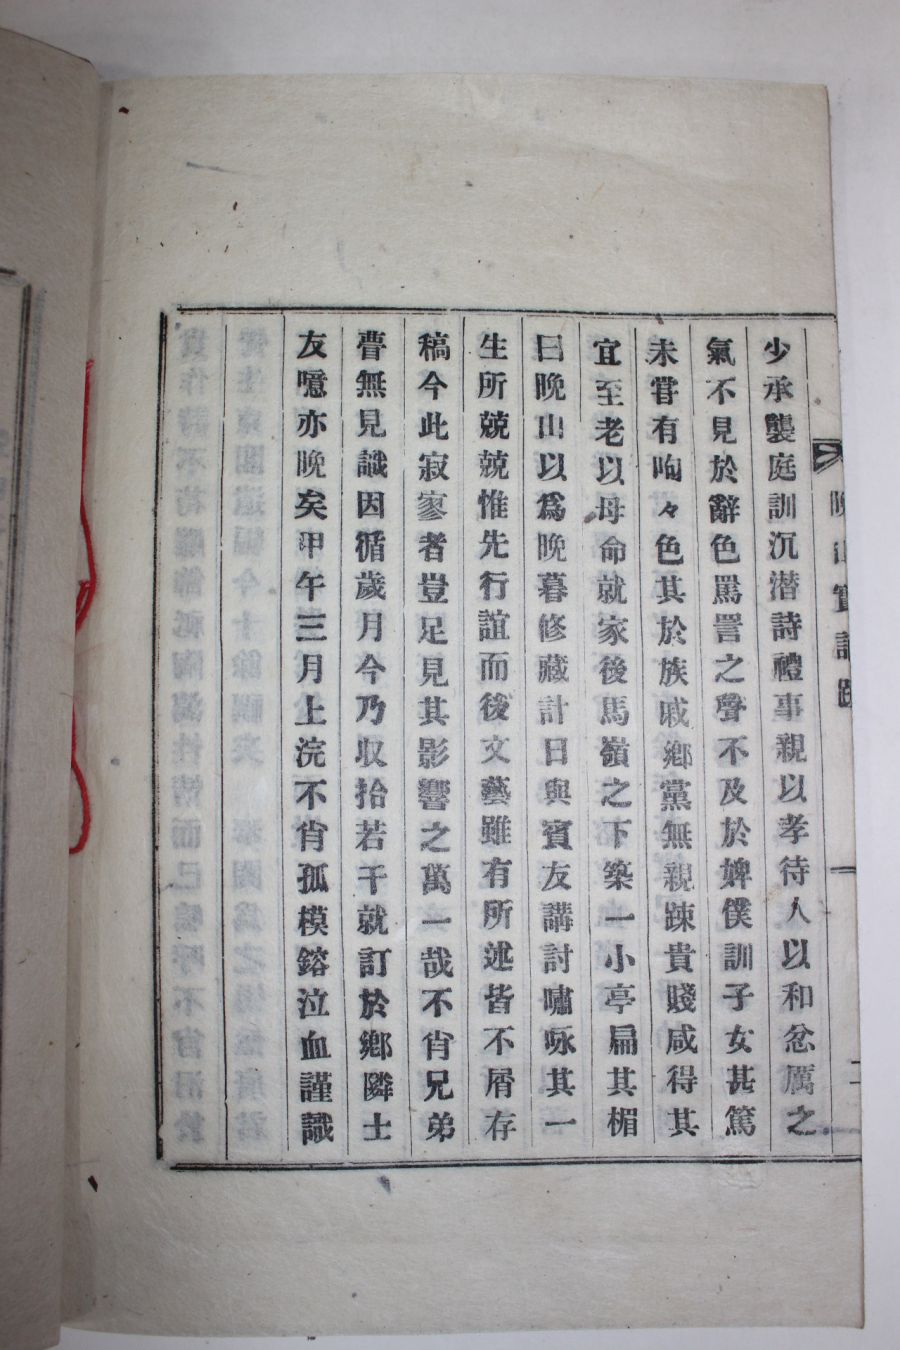 晩山實記跋
少承襲庭訓沉潜詩禮事親以孝待人以和忿厲之
氣不見於辭色罵詈之聲不及於婢僕訓子女甚篤
未甞有呴々色其於族戚鄕黨無親踈貴賤咸得其
宜至老以母命就家後馬嶺之下築一小亭扁其楣
曰晩山以爲晩暮修藏計日與賓友講討嘯咏其一
生所兢兢惟先行誼而後文藝雖有所述皆不屑存
稿今此寂寥者豈足見其影響之萬一哉不肖兄弟
瞢無見識因循歲月今乃収拾若干就訂於鄕隣士
友噫亦晩矣甲午三月上浣不肖孤模鎔泣血謹識